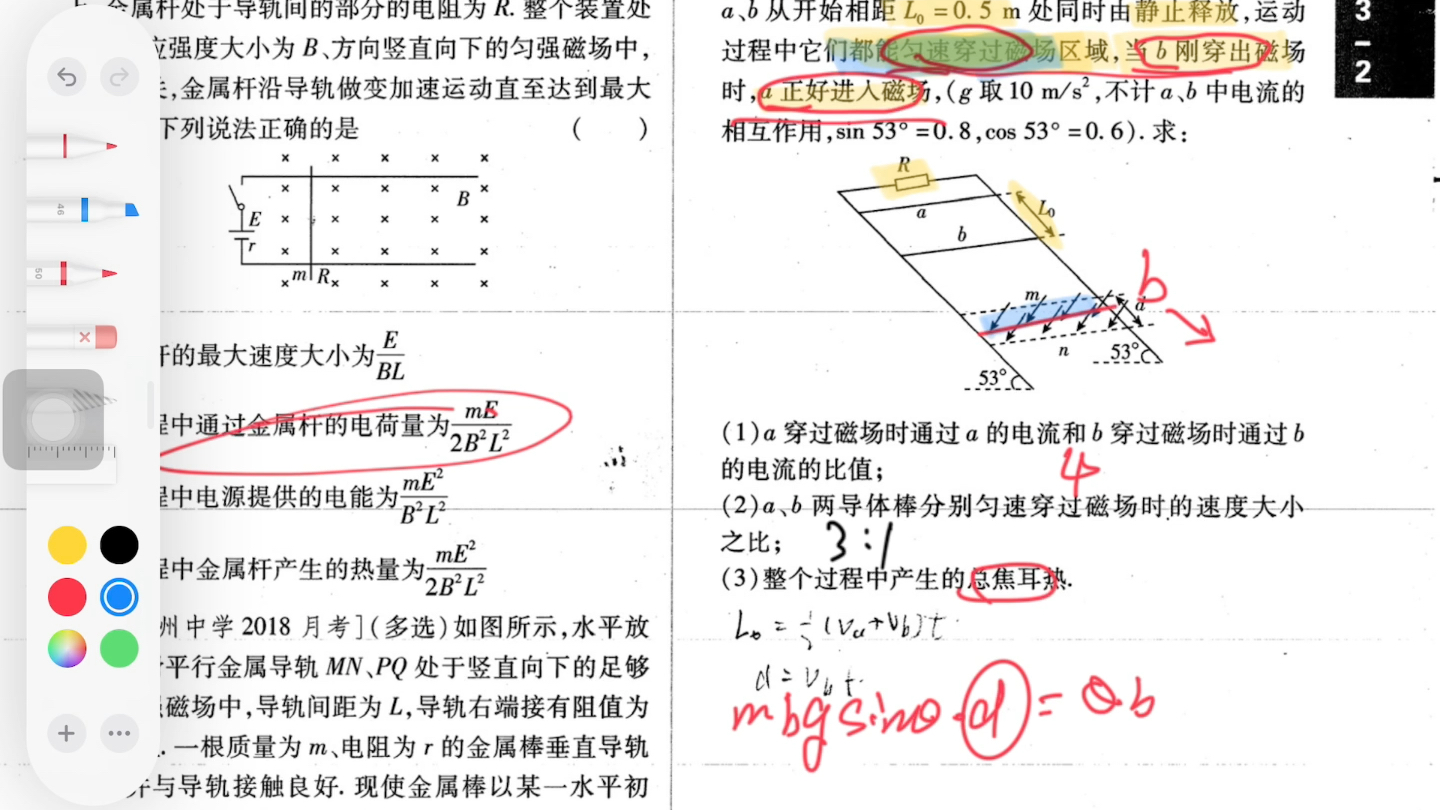 金属杆处于导轨间的部分的电阻为 R. 整个装置处
应强度大小为 B、方向竖直向下的匀强磁场中,
,金属杆沿导轨做变加速运动直至达到最大
下列说法正确的是 ( )
B
E
r
m R
杆的最大速度大小为E/BL
程中通过金属杆的电荷量为mE/2B²L²
程中电源提供的电能为mE²/B²L²
程中金属杆产生的热量为mE²/2B²L²
州中学 2018 月考](多选)如图所示,水平放
平行金属导轨 MN、PQ 处于竖直向下的足够
磁场中,导轨间距为 L,导轨右端接有阻值为
. 一根质量为 m、电阻为 r 的金属棒垂直导轨
并与导轨接触良好. 现使金属棒以某一水平初
a、b 从开始相距 L₀ = 0.5 m 处同时由静止释放,运动
过程中它们都能匀速穿过磁场区域,当 b 刚穿出磁场
时,a 正好进入磁场,(g 取 10 m/s²,不计 a、b 中电流的
相互作用,sin 53° = 0.8,cos 53° = 0.6). 求:
R
a
L₀
b
b
m
d
n
53°
53°
(1)a 穿过磁场时通过 a 的电流和 b 穿过磁场时通过 b
的电流的比值;
(2)a、b 两导体棒分别匀速穿过磁场时的速度大小
之比; 3:1
(3)整个过程中产生的总焦耳热.
d = Vb t
mbg sinθ·d = Qb
3-2
46
50